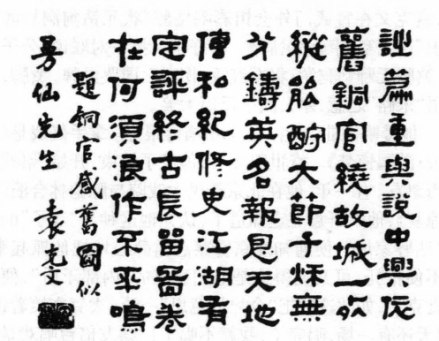 篇重與說中興
舊銅官繞故城一
縱能酧大節千秌無
分鑄英名報恩天地
傳私紀修史江湖有
定評終古長留圖卷
在何須哀作不平鳴
題銅官感舊圖似
勇仙先生 袁克文